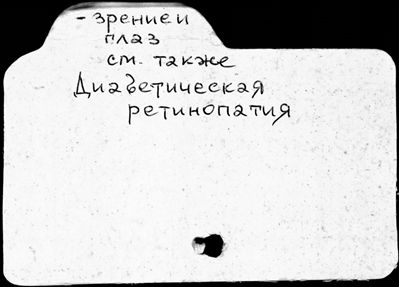 - зрение и
глаз
см. также
Диабетическая
ретинопатия